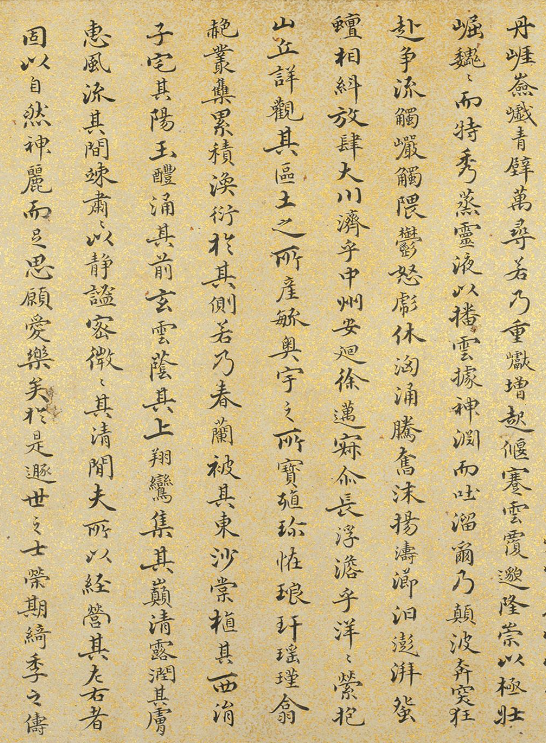 丹崕嶮巇青壁萬尋若乃重巘增起偃蹇雲覆邈隆崇以極壯
崛巍〻而特秀蒸靈液以播雲據神淵而吐溜爾乃顛波奔突狂
赴争流觸巖觸隈鬱怒彪休洶涌騰奮沫揚濤瀄汩澎湃蛩
蟺相糾放肆大川濟乎中州安廻徐邁寂尒長浮澹乎洋〻縈抱
山丘詳觀其區土之所産毓奥宇之所寶殖珎恠琅玕瑶瑾翕
赩叢集累積渙衍於其側若乃春蘭被其東沙棠植其西涓
子宅其陽玉醴涌其前玄雲蔭其上翔鸞集其巔清露潤其膚
惠風流其間竦肅〻以静謐密微〻其清閒夫所以経營其左右者
固以自然神麗而足思願愛樂矣於是遯世之士榮期綺季之儔